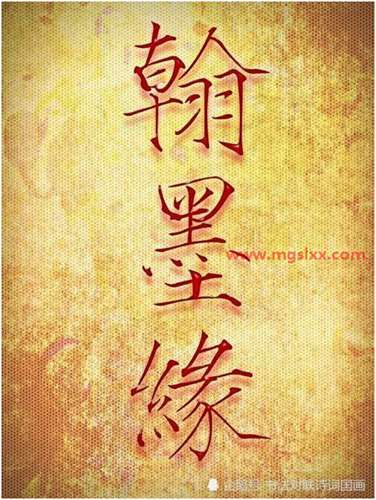 翰
墨
緣
www.mgslxx.com
企鹅号 书法对联诗词国画